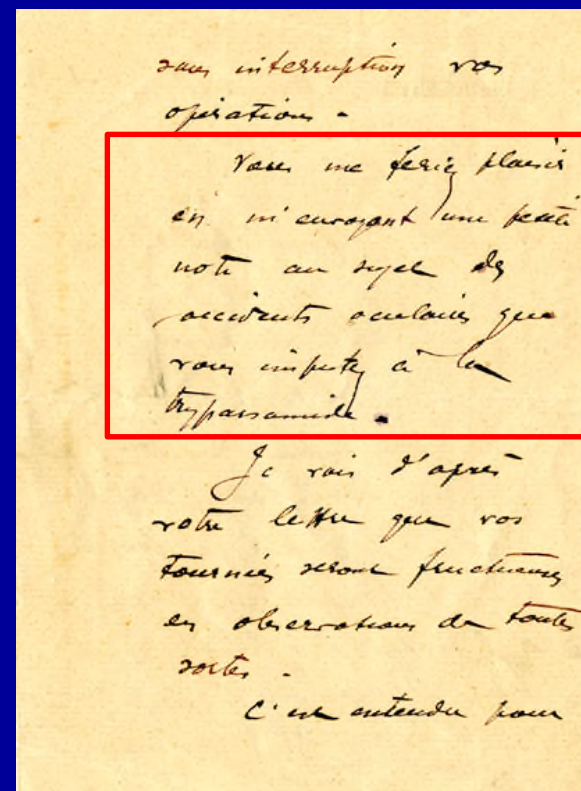 sans interruption vos
opérations.
Vous me feriez plaisir
en m'envoyant une petite
note au sujet des
accidents oculaires que
vous imputez à la
tryparsamide.
Je vois d'après
votre lettre que vos
tournées seront fructueuses
en observations de toutes
sortes.
C'est entendu pour